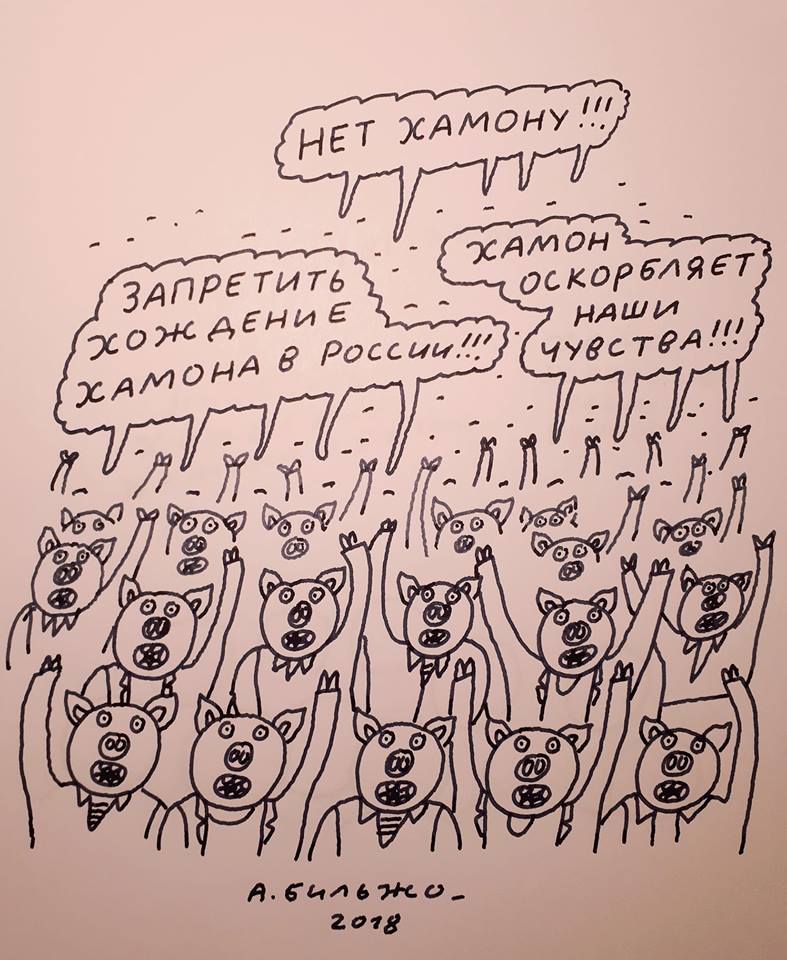 НЕТ ХАМОНУ!!!
ЗАПРЕТИТЬ
ХОЖДЕНИЕ
ХАМОНА В РОССИИ!!!
ХАМОН
ОСКОРБЛЯЕТ
НАШИ
ЧУВСТВА!!!
А. БИЛЬЖО_
2018